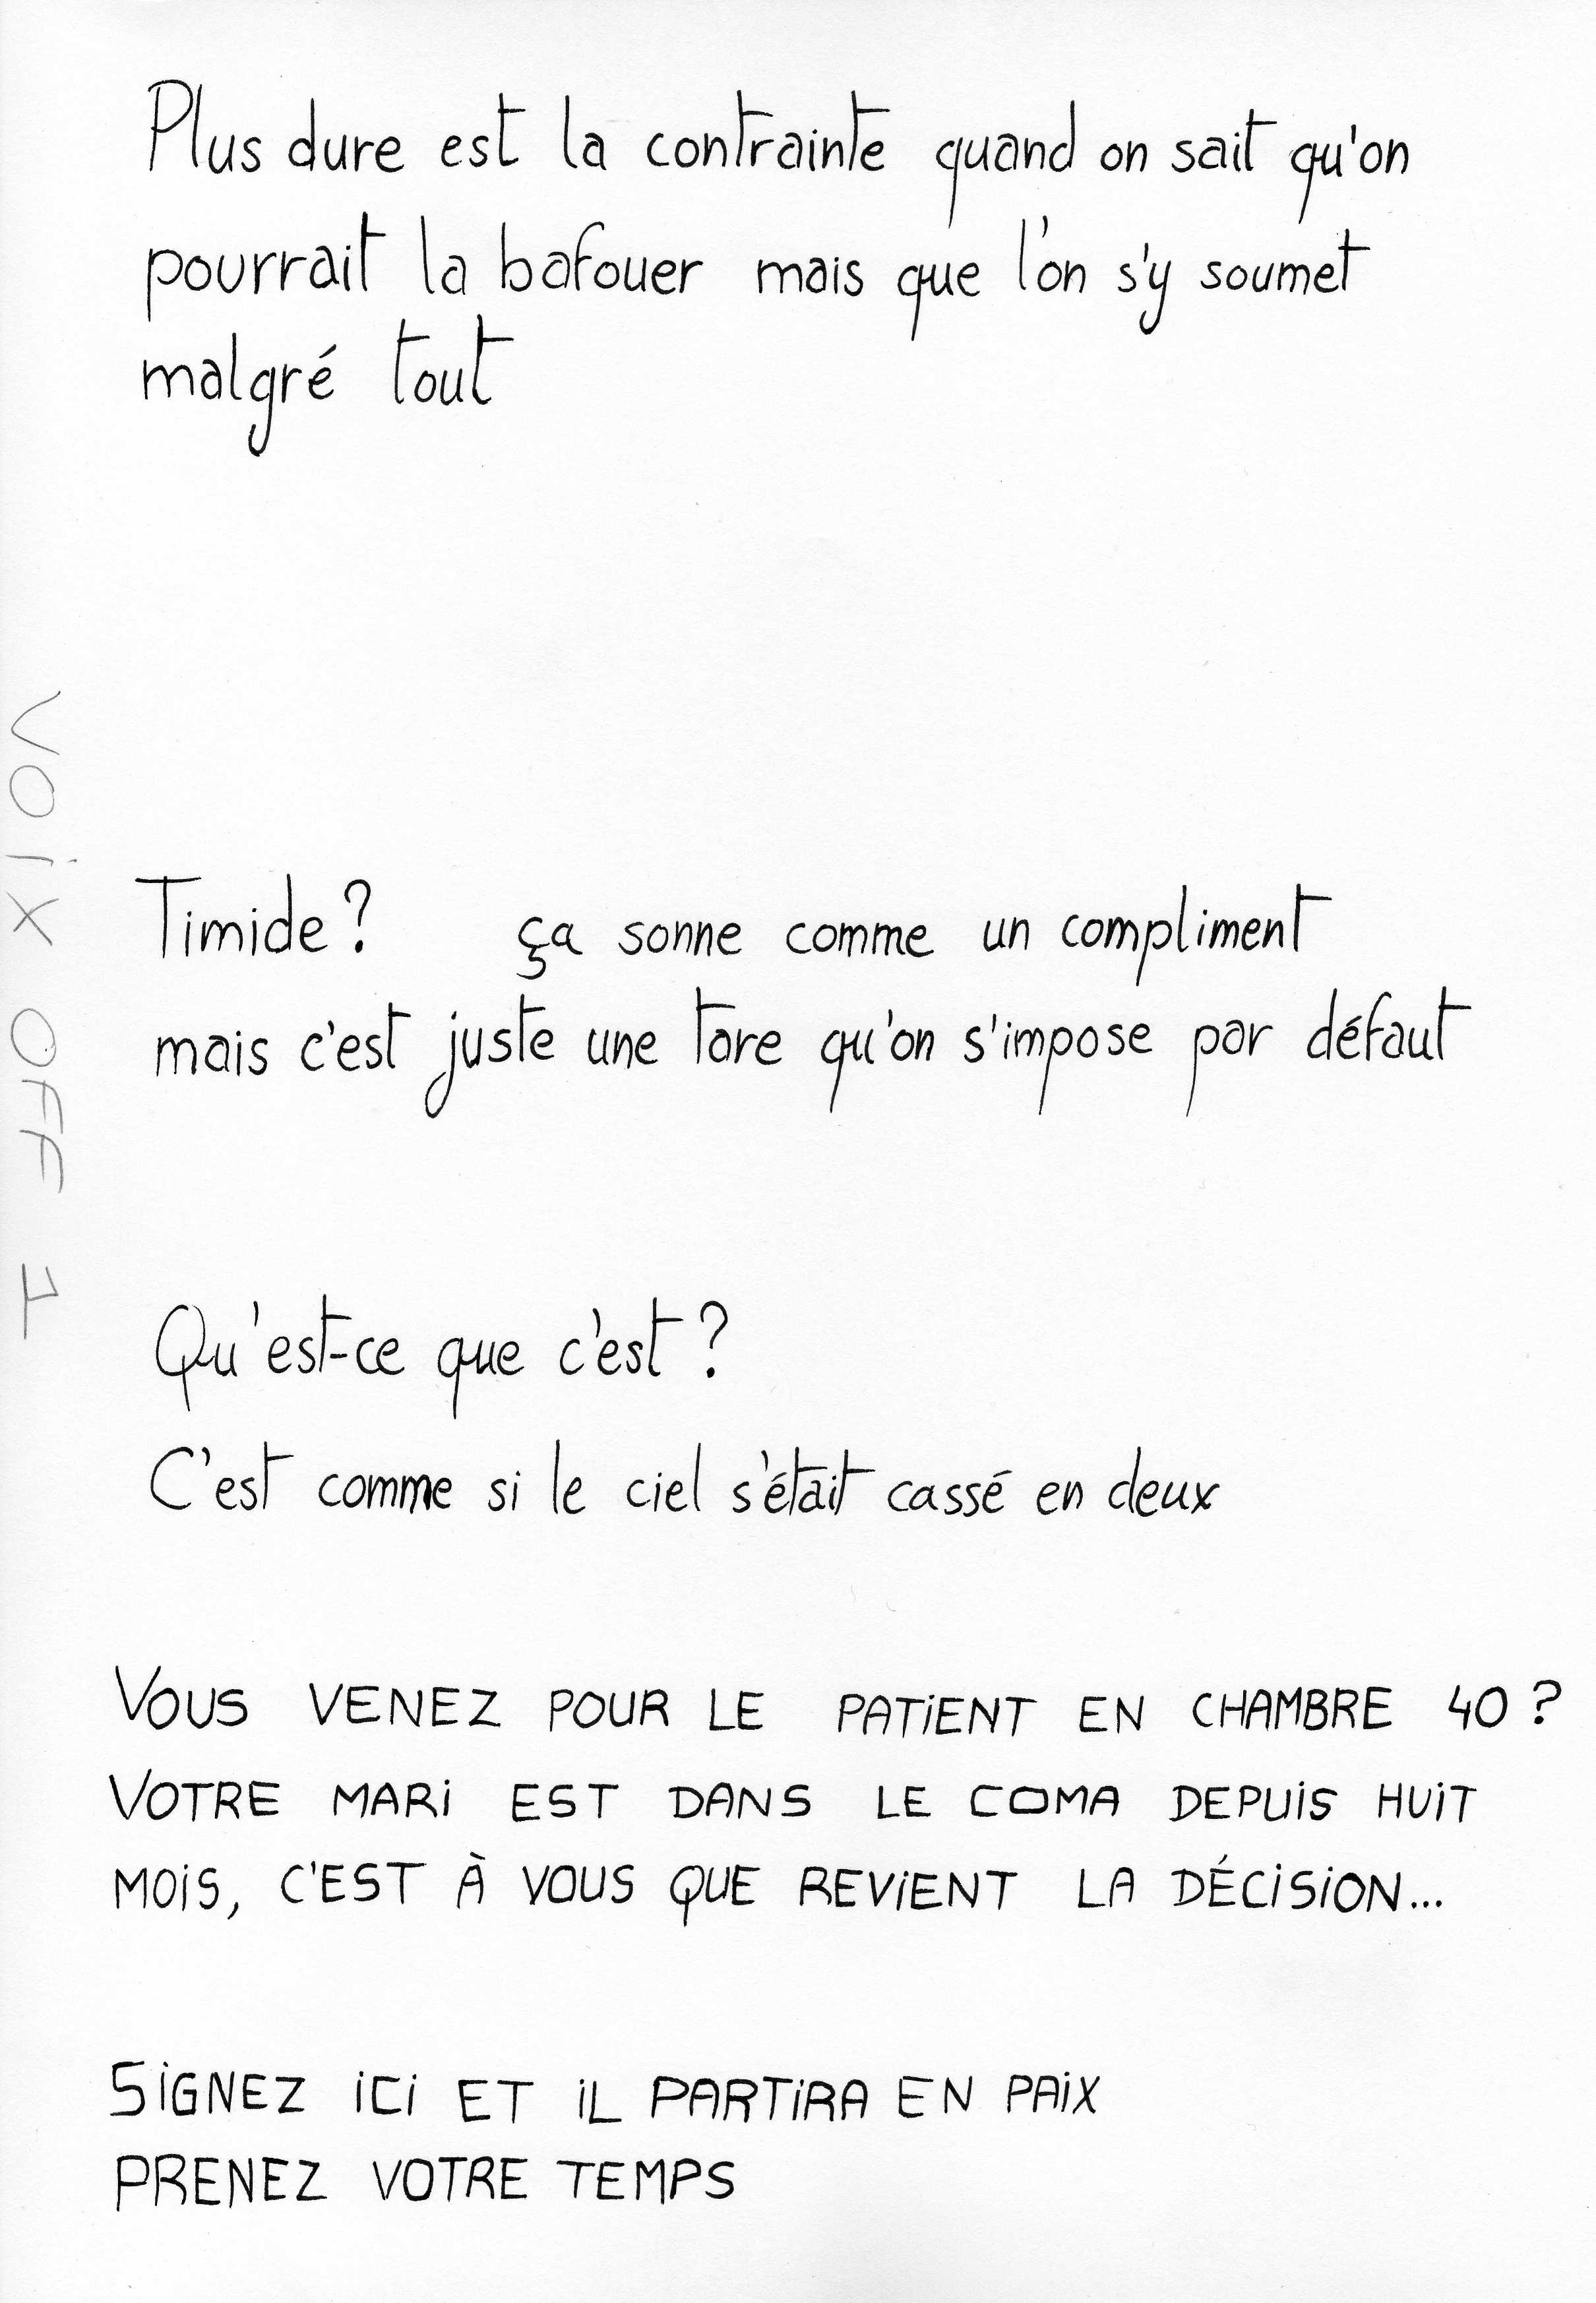 Plus dure est la contrainte quand on sait qu'on
pourrait la bafouer mais que l'on s'y soumet
malgré tout
VOiX OFF 1
Timide ? ça sonne comme un compliment
mais c'est juste une tare qu'on s'impose par défaut
Qu'est-ce que c'est ?
C'est comme si le ciel s'était cassé en deux
VOUS VENEZ POUR LE PATiENT EN CHAMBRE 40 ?
VOTRE MARi EST DANS LE COMA DEPUiS HUiT
MOiS, C'EST À VOUS QUE REViENT LA DÉCiSiON...
SiGNEZ iCi ET iL PARTiRA EN PAiX
PRENEZ VOTRE TEMPS